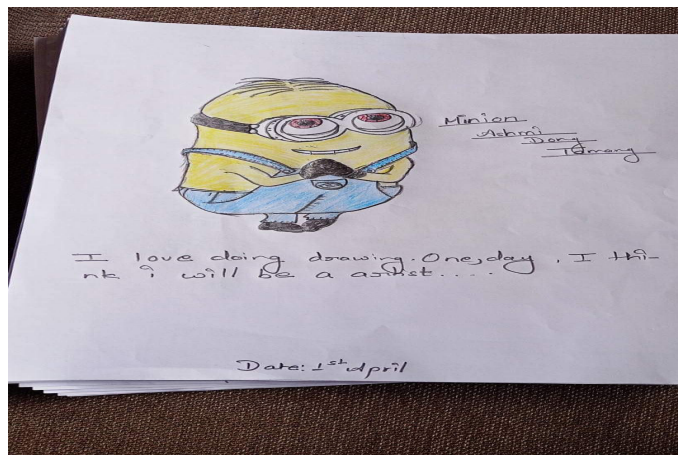 Minion
Ashmi
Dong
Tamang
I love doing drawing. One, day , I thi-
nk i will be a artist....
Date: 1st April